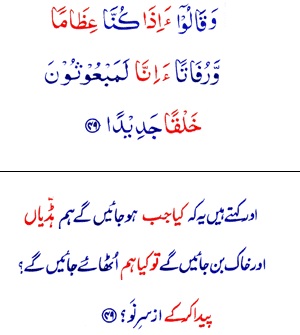 وَقَالُوْٓا ءَاِذَا كُنَّا عِظَامًا
وَّرُفَاتًا ءَاِنَّا لَمَبْعُوْثُوْنَ
خَلْقًا جَدِيْدًا ﴿۴۹﴾
اور کہتے ہیں یہ کہ کیا جب ہو جائیں گے ہم ہڈیاں
اور خاک بن جائیں گے تو کیا ہم اُٹھائے جائیں گے؟
پیدا کر کے از سرِ نَو؟ ﴿۴۹﴾